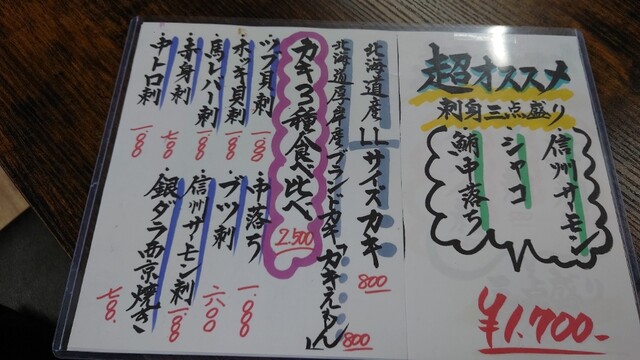 超オススメ
刺身三点盛り
・信州サモン
・シャコ
・鮪中落ち
¥1,700-
北海道産LLサイズカキ 800
北海道厚岸産ブランドカキ「カキえもん」 800
カキ3種食べ比べ 2,500
・ツブ貝刺
・ホッキ貝刺
・馬レバー刺
・赤身刺
・中トロ刺
・中落ち
・ブツ刺 六〇〇
・信州サーモン刺
・銀ダラ西京焼き